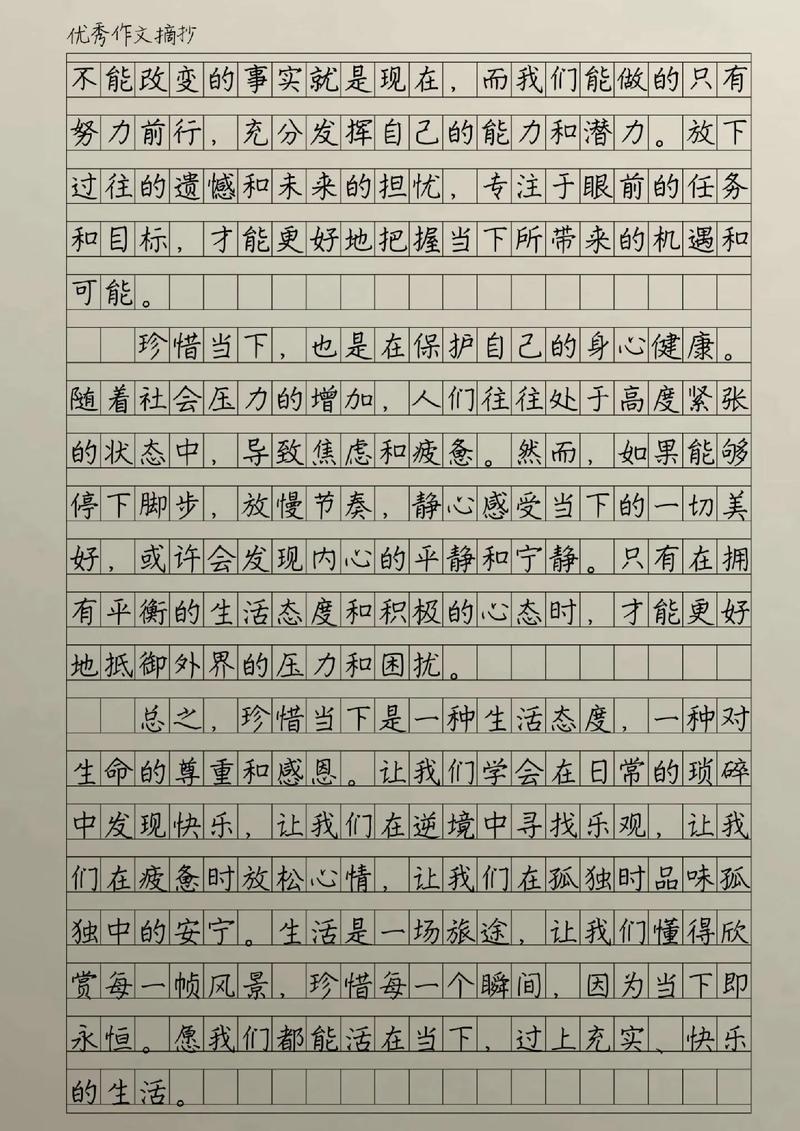 优秀作文摘抄
不能改变的事实就是现在，而我们能做的只有
努力前行，充分发挥自己的能力和潜力。放下
过往的遗憾和未来的担忧，专注于眼前的任务
和目标，才能更好地把握当下所带来的机遇和
可能。
珍惜当下，也是在保护自己的身心健康。
随着社会压力的增加，人们往往处于高度紧张
的状态中，导致焦虑和疲惫。然而，如果能够
停下脚步，放慢节奏，静心感受当下的一切美
好，或许会发现内心的平静和宁静。只有在拥
有平衡的生活态度和积极的心态时，才能更好
地抵御外界的压力和困扰。
总之，珍惜当下是一种生活态度，一种对
生命的尊重和感恩。让我们学会在日常的琐碎
中发现快乐，让我们在逆境中寻找乐观，让我
们在疲惫时放松心情，让我们在孤独时品味孤
独中的安宁。生活是一场旅途，让我们懂得欣
赏每一帧风景，珍惜每一个瞬间，因为当下即
永恒。愿我们都能活在当下，过上充实、快乐
的生活。